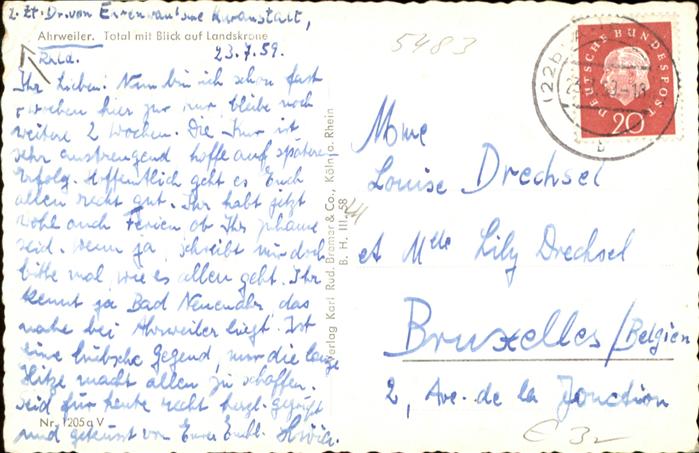 z. Zt. Dr. von Ehrenwall'sche Kuranstalt,
Ahrweiler. Total mit Blick auf Landskrone
Rhld.
23.7.59.
Ihr Lieben! Nun bin ich schon fast
Wochen hier zur Kur, bleibe noch
weitere 2 Wochen. Die Kur ist
sehr anstrengend hoffe auf späteren
Erfolg. Hoffentlich geht es Euch
allen recht gut. Ihr habt jetzt
wohl auch Ferien ob Ihr zuhause
seid, wenn ja, schreibt mir doch
bitte mal, wie es allen geht. Ihr
kennt ja Bad Neuenahr das
nahe bei Ahrweiler liegt. Ist
eine hübsche Gegend, nur die lange
Hitze macht allen zu schaffen.
Seid für heute recht herzl. gegrüßt
und geküsst von Eurer
Nr. 1205 a V
Verlag Karl Rud. Bremer & Co., Köln a. Rhein
B. H. III. 58
5483
DEUTSCHE BUNDESPOST
20
(22b)
b
Mme
Louise Drechsel
et Mlle Lily Drechsel
Bruxelles / Belgien
2, Ave. de la Jonction